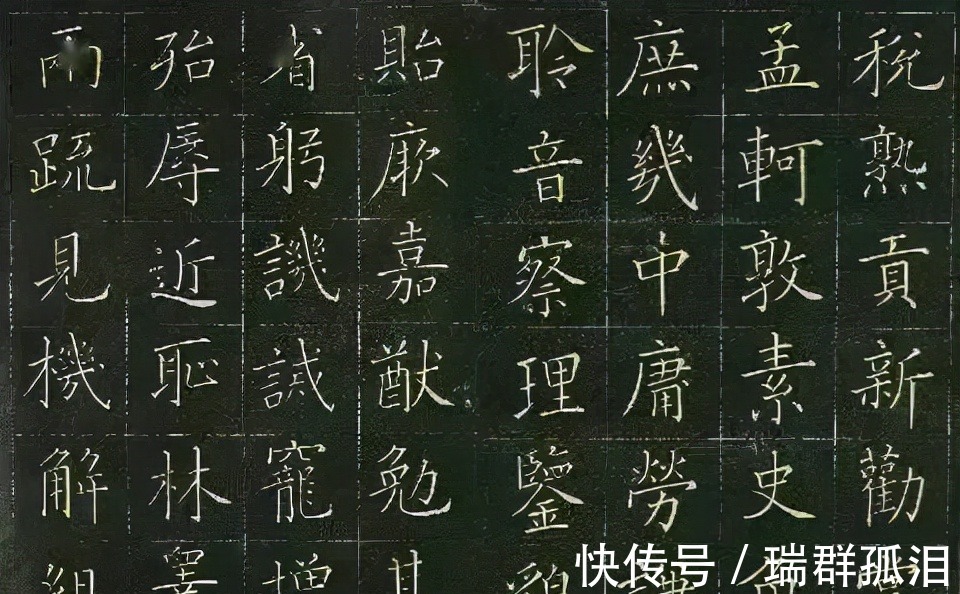 稅熟貢新勸
孟軻敦素史
庶幾中庸勞
聆音察理鑒
貽厥嘉猷勉其
省躬譏誡寵增
殆辱近恥林
兩疏見機解組
快传号 / 瑞群孤泪